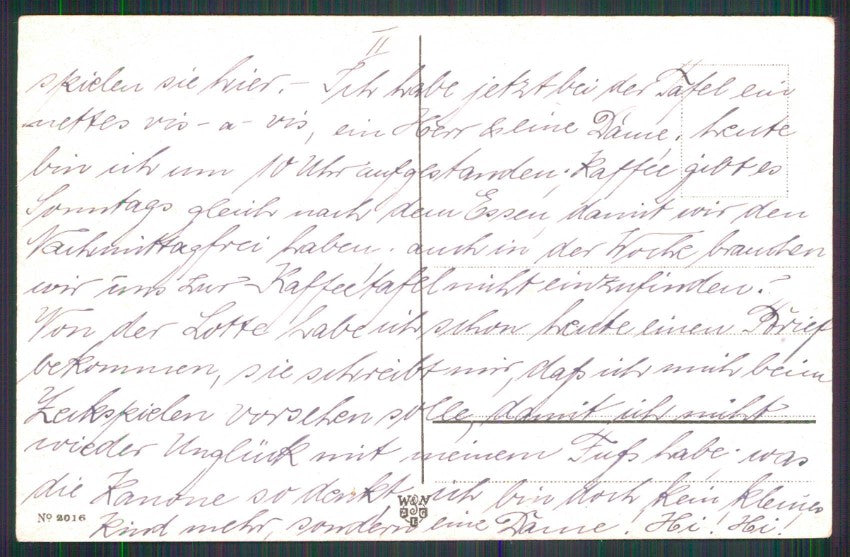 II
spielen sie hier. – Ich habe jetzt bei der Tafel ein
nettes vis-a-vis, ein Herr & eine Dame. heute
bin ich um 10 Uhr aufgestanden; Kaffee gibt es
Sonntags gleich nach dem Essen, damit wir den
Nachmittag frei haben. auch in der Woche brauchen
wir uns zur Kaffeetafel nicht einzufinden?
Von der Lotte habe ich schon heute einen Brief
bekommen, sie schreibt mir, daß ich mich beim
Zeckspielen vorsehen solle, damit ich nicht
wieder Unglück mit meinem Fuß habe. was
die Kanone so denkt, ich bin doch kein kleines
Kind mehr, sondern eine Dame! Hi! Hi!
No 2016